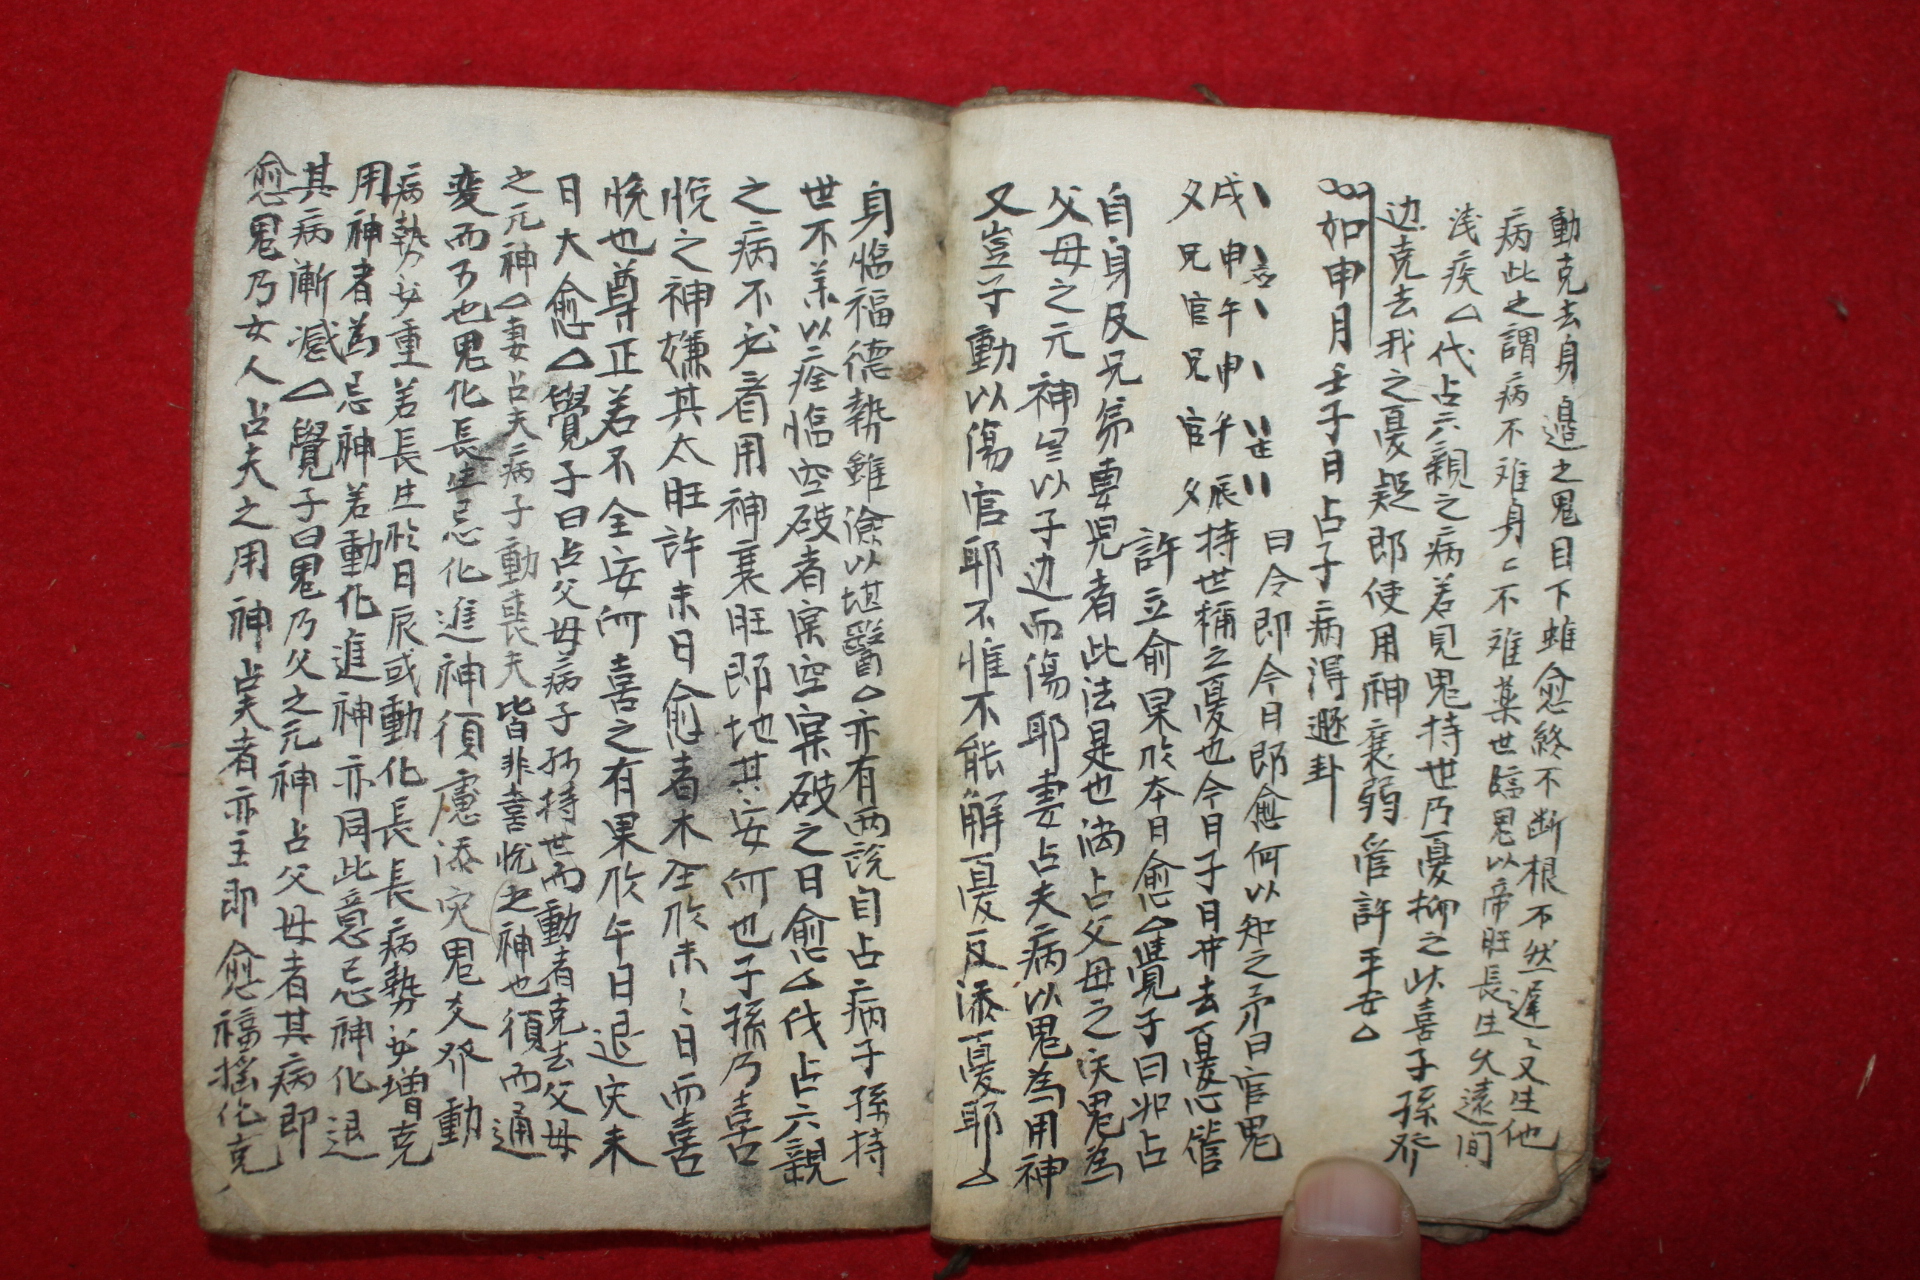 動克去身邊之鬼目下雖愈終不断根不然遲〻又生他
病此之謂病不难身〻不难薬世臨鬼以帝旺長生久遠间
浅疾△代占六親之病若見鬼持世乃憂抑之此喜子孫發
边克去我之憂疑即使用神衰弱管許平安△
如申月壬子日占子病得遯卦
曰今即今月即愈何以知之予曰官鬼
戌申午申午辰持世稱之憂也今日子日冲去憂心管
父兄官兄官父
許立俞果於本日愈△覺子曰如占
自身及兄弟妻児者此法是也尚占父母之病鬼為
父母之元神豈以子边而傷耶妻占夫病以鬼為用神
又豈子動以傷官耶不惟不能解憂反添憂耶△
身临福德勢雖険以堪醫△亦有両説自占病子孫持
世不薬以痊临空破者寔空寔破之日愈△代占六親
之病不必着用神衰旺即地其安何也子孫乃喜
悅之神嫌其太旺許未日愈者木全於未〻日而喜
悅也尊正若不全安何喜之有果於午日退灾未
日大愈△覺子曰占父母病子孫持世而動者克去父母
之元神△妻占夫病子動喪夫皆非喜悅之神也須而通
変而可也鬼化長生忌化進神須慮添灾鬼爻發動
病勢必重若長生於日辰或動化長長病勢必増克
用神者為忌神若動化進神亦同此意忌神化退
其病漸減△覺子曰鬼乃父之元神占父母者其病即
愈鬼乃女人占夫之用神占夫者亦主即愈福搖化克